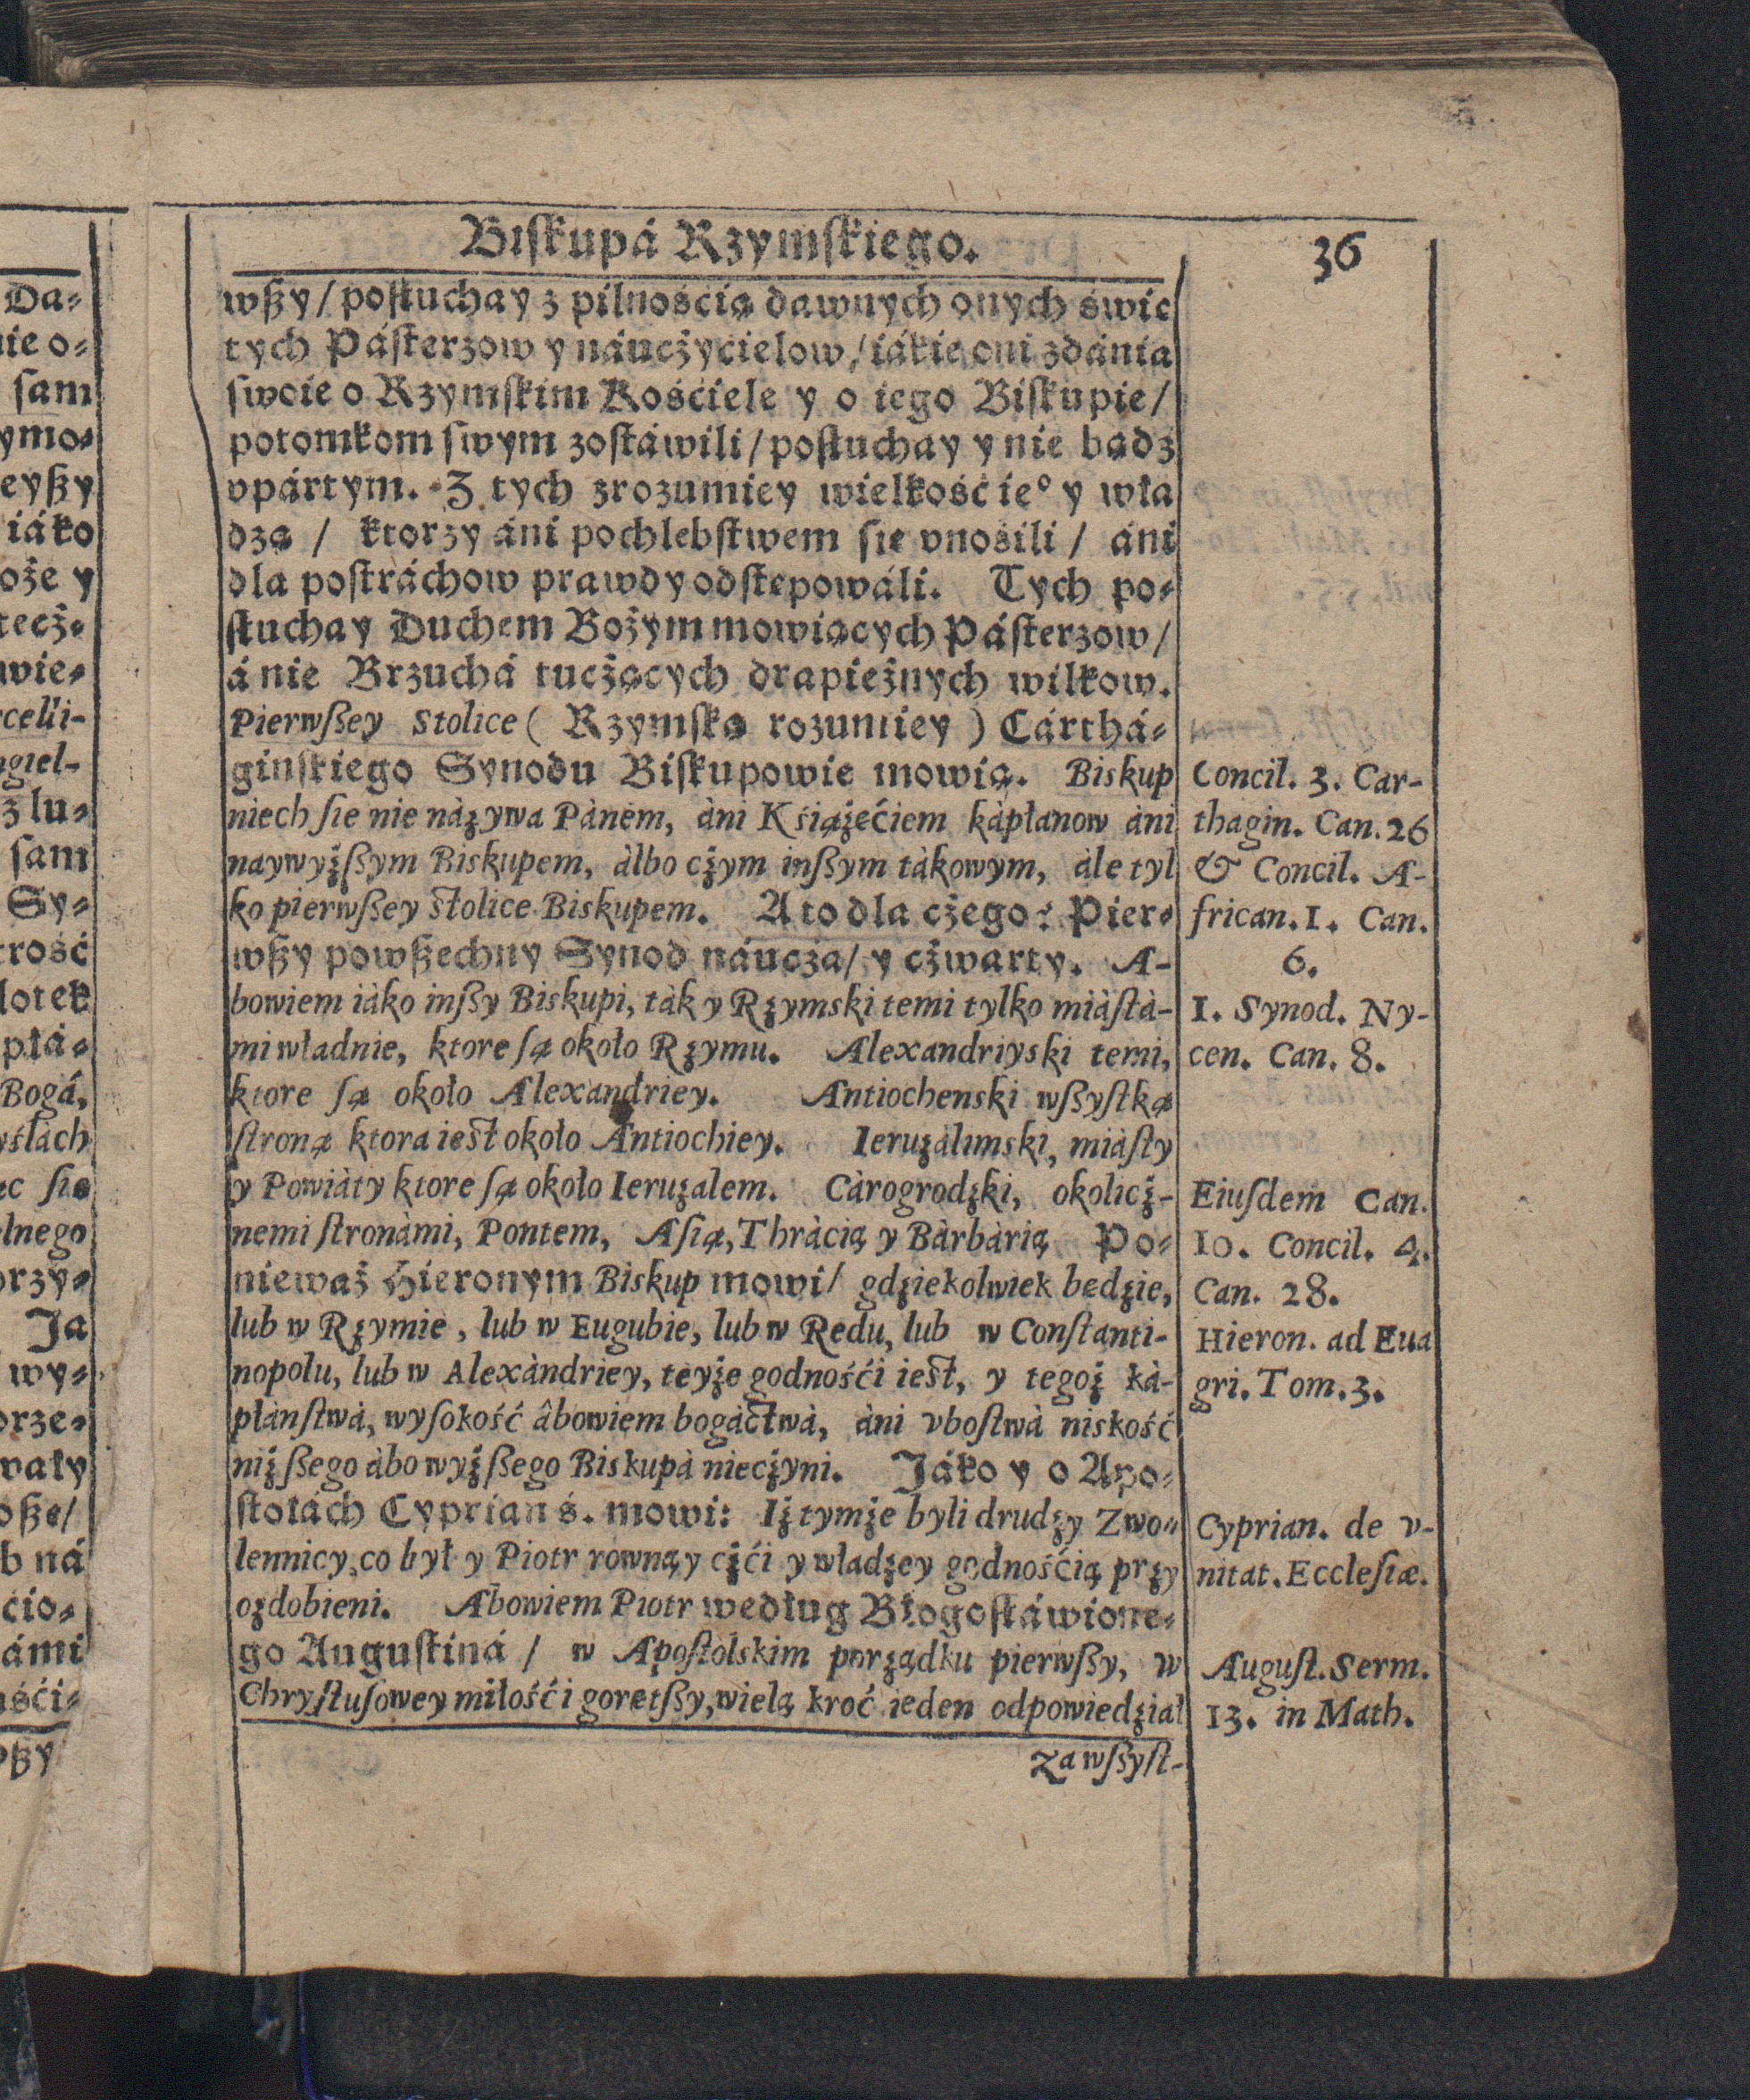 Biſkupá Rzymſkiego.
36
wßy / poſłuchay z pilnośćią dawnych onych świę
tych Páſterzow y náucżyćielow / iákie oni zdánia
ſwoie o Rzymſkim Kośćiele y o iego Biſkupie /
potomkom ſwym zoſtáwili / poſłuchay y nie bądz
vpártym. Z tych zrozumiey wielkość ie° y wła
dzą / ktorzy áni pochlebſtwem ſię vnośili / áni
dla poſtráchow prawdy odſtępowáli. Tych po-
ſłuchay Duchem Bożym mowiących Páſterzow /
á nie Brzuchá tucżących drapieżnych wilkow.
Pierwßey Stolice ( Rzymſką rozumiey ) Cárthá-
ginſkiego Synodu Biſkupowie mowią. Biskup
niech ſie nie nàzywa Pànem, àni Kśiążęćiem kàpłanow àni
naywyżßym Biskupem, àlbo cżym inßym tàkowym, àle tyl
ko pierwßey ſtolice Biskupem. A to dla cżego? Pier-
wßy powßechny Synod náucża / y cżwarty. A-
bowiem iàko inßy Biskupi, tàk y Rzymski temi tylko miàſtà-
mi władnie, ktore ſą około Rzymu. Alexandriyski temi,
ktore ſą około Alexandriey. Antiochenski wßyſtką
ſtroną ktora ieſt około Antiochiey. Ieruzàlimski, miàſty
y Powiàty ktore ſą około Ieruzalem. Càrogrodzki, okolicż-
nemi ſtronàmi, Pontem, Aſią, Thràcią y Bàrbàrią Po-
nieważ Hieronym Biskup mowi / gdziekolwiek będzie,
lub w Rzymie, lub w Eugubie, lub w Redu, lub w Conſtanti-
nopolu, lub w Alexàndriey, teyże godnośći ieſt, y tegoż kà-
płanſtwà, wyſokość âbowiem bogàctwà, àni vboſtwà niskość
niżßego àbo wyżßego Biskupà niecżyni. Jáko y o Apo-
ſtołách Cyprian ś. mowi: Iż tymże byli drudzy Zwo-
lennicy, co był y Piotr rowną y cżći y władzey godnośćią przy
ozdobieni. Abowiem Piotr według Błogoſłáwione-
go Auguſtiná / w Apoſtolskim porządku pierwßy, w
Chryſtuſowey miłośći gorętßy, wielą kroć ieden odpowiedział
Za wßyſt-
Concil. 3. Car-
thagin. Can. 26
& Concil. A-
frican. 1. Can.
6.
1. Synod. Ny-
cen. Can. 8.
Eiuſdem Can.
10. Concil. 4.
Can. 28.
Hieron. ad Eua
gri. Tom. 3.
Cyprian. de v-
nitat. Eccleſiæ.
Auguſt. Serm.
13. in Math.